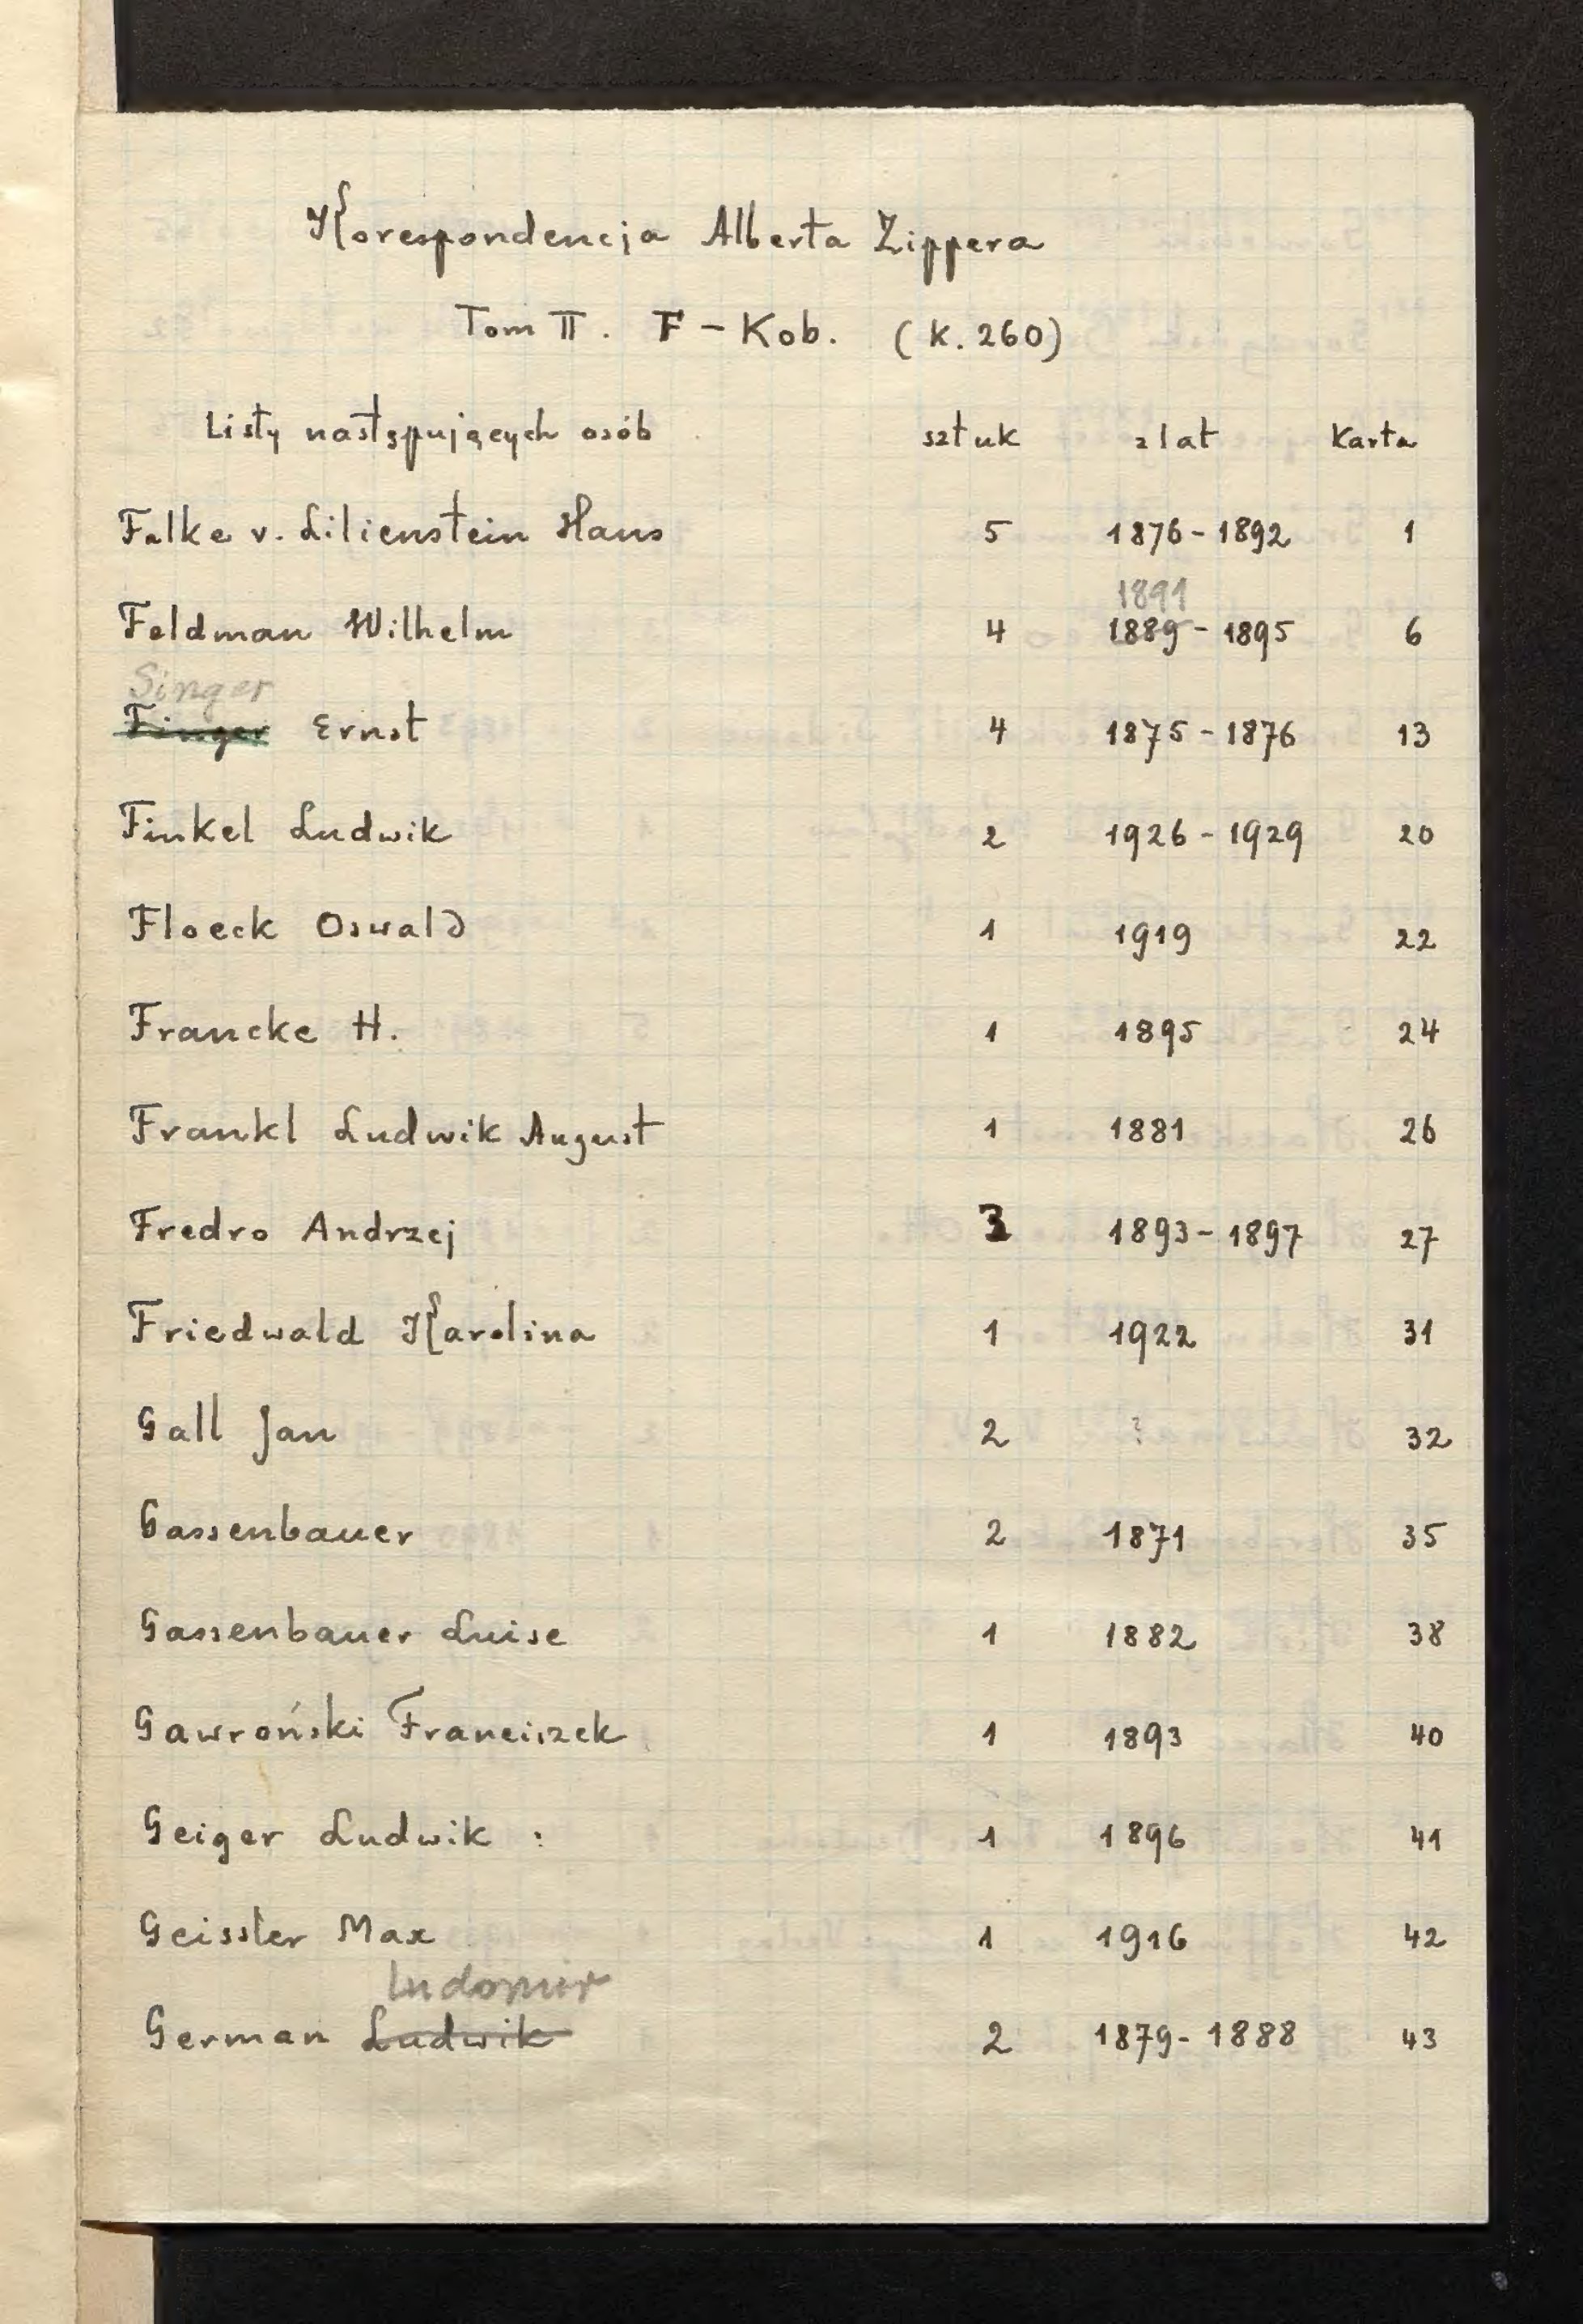 Korespondencja Alberta Zippera
Tom II. F - Kob. (k. 260)
Listy następujących osób sztuk z lat Karta
Falke v. Lilienstein Hans 5 1876 - 1892 1
1891
Feldman Wilhelm 4 1889 - 1895 6
Singer
Finger Ernst 4 1875 - 1876 13
Finkel Ludwik 2 1926 - 1929 20
Floeck Oswald 1 1919 22
Francke H. 1 1895 24
Frankl Ludwik August 1 1881 26
Fredro Andrzej 3 1893 - 1897 27
Friedwald Karolina 1 1922 31
Gall Jan 2 ? 32
Gassenbauer 2 1871 35
Gassenbauer Luise 1 1882 38
Gawroński Franciszek 1 1893 40
Geiger Ludwik : 1 1896 41
Geissler Max 1 1916 42
Ludomir
German Ludwik 2 1879 - 1888 43